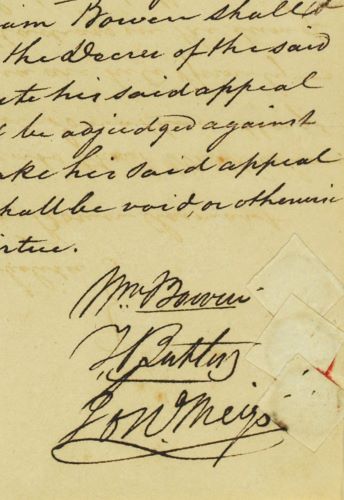 am Bowen shall
the Decree of the said
ute his said appeal
be adjudged against
ake his said appeal
shall be void, or otherwise
irtue.
Wm Bowen
Jon. Meigs